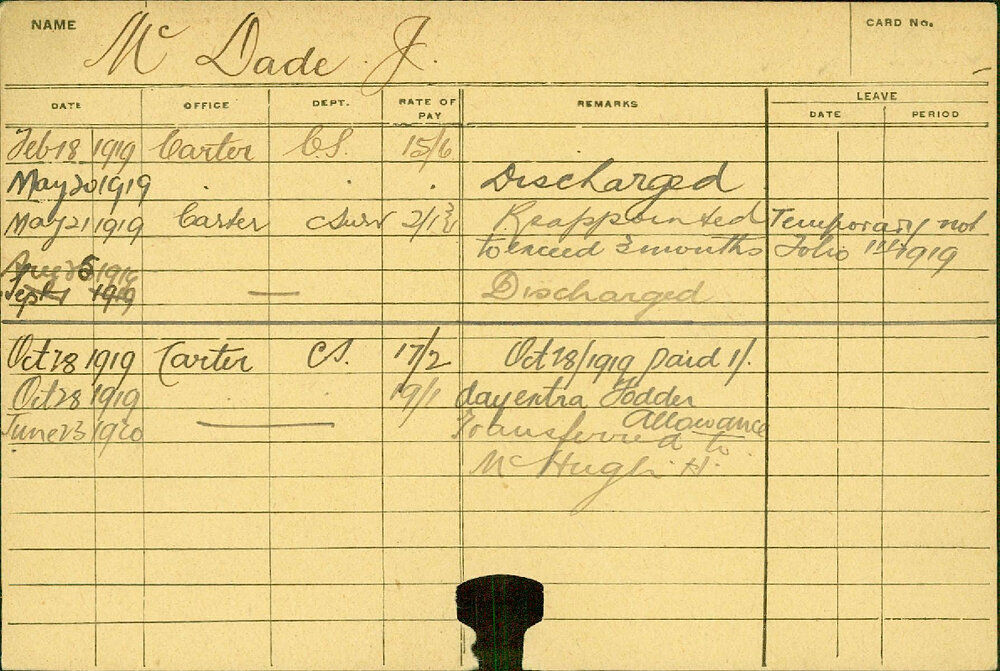 NAME Mc Dade J. CARD No.
DATE OFFICE DEPT. RATE OF PAY REMARKS LEAVE
DATE PERIOD
Feb 18 1919 Carter C.S. 15/6
May 20 1919 . . . Discharged
May 21 1919 Carter C Surv Reappointed Temporary not
to exceed 3 months Folio 1919
Aug 25 1919
Sept 1 1919 — Discharged
Oct 18 1919 Carter C.S. 17/2 Oct 18/1919 paid 1/.
Oct 28 1919 . . 19/1 day extra Fodder
Allowance
June 23 1920 — Transferred to
Mc Hugh H.